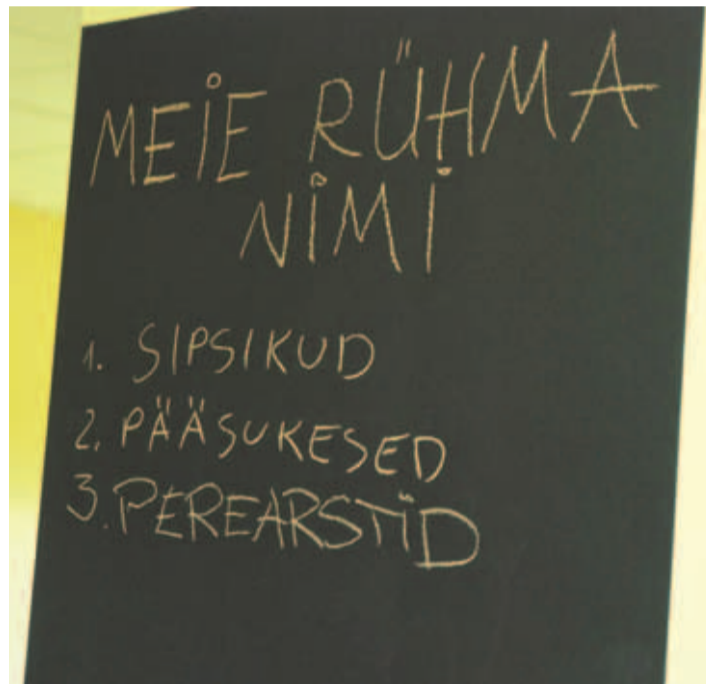 MEIE RÜHMA
NIMI
1. SIPSIKUD
2. PÄÄSUKESED
3. PEREARSTID